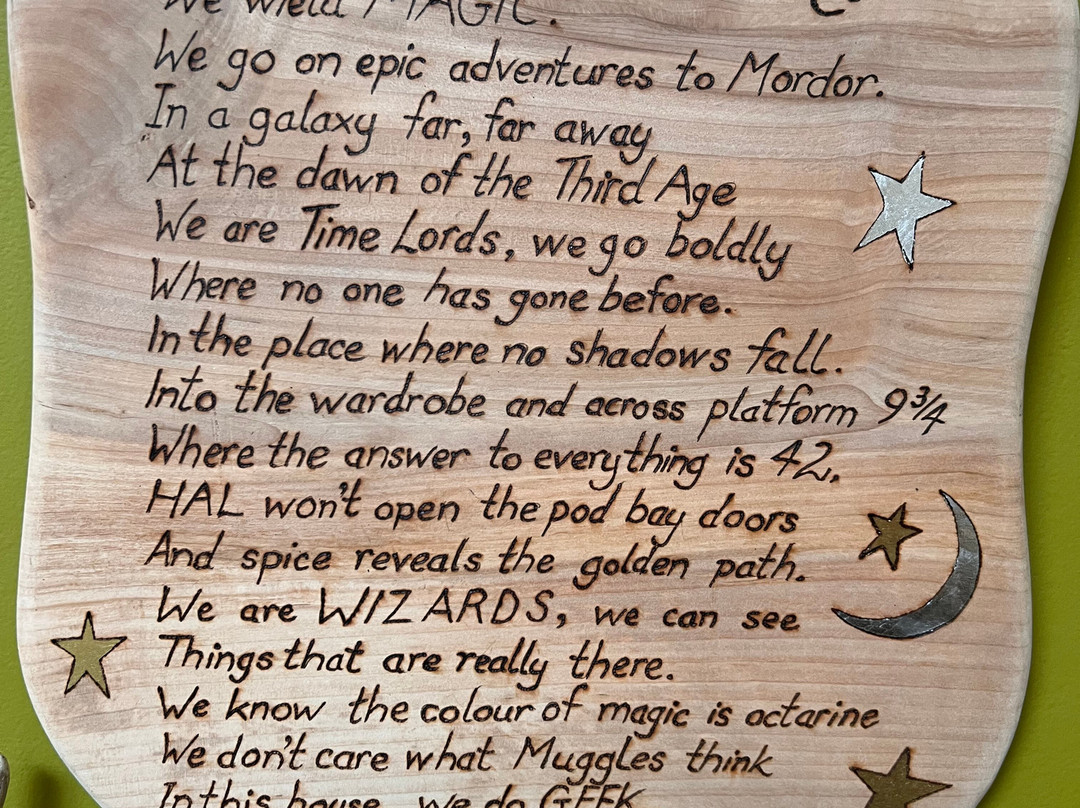 We wield MAGIC.
We go on epic adventures to Mordor.
In a galaxy far, far away
At the dawn of the Third Age
We are Time Lords, we go boldly
Where no one has gone before.
In the place where no shadows fall.
Into the wardrobe and across platform 9¾
Where the answer to everything is 42,
HAL won't open the pod bay doors
And spice reveals the golden path.
We are WIZARDS, we can see
Things that are really there.
We know the colour of magic is octarine
We don't care what Muggles think
In this house, we do GEEK